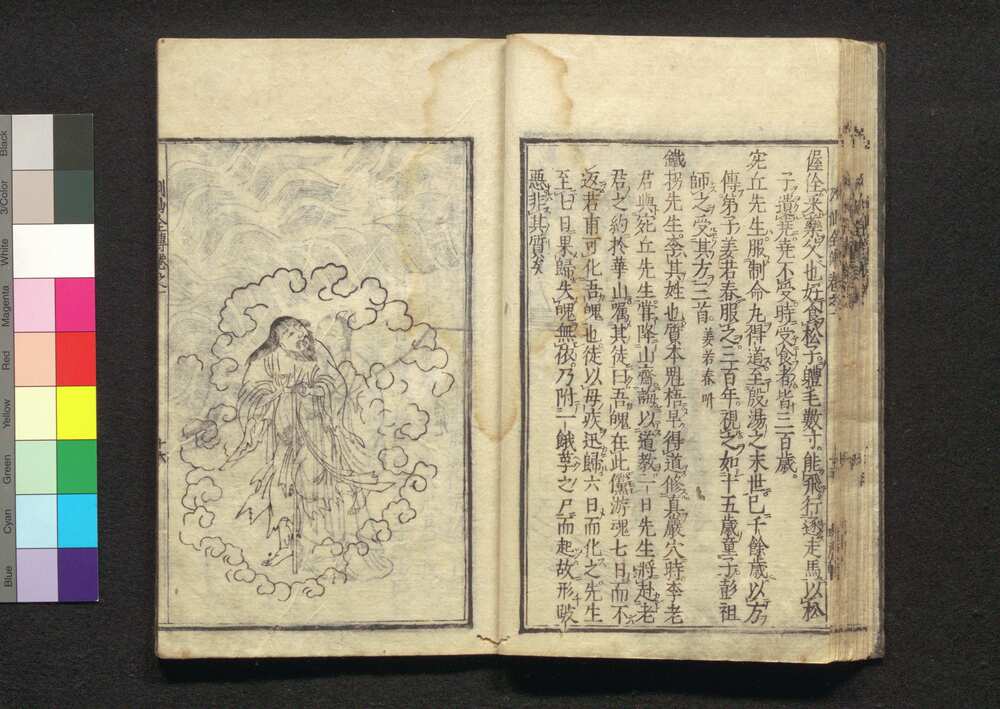 偓佺采藥父也好食松子體毛數寸能飛行逐走馬以松
子遺堯堯不受時受食者皆三百歲
宛丘先生服制命丸得道至殷湯之末世已千餘歲以方
傳弟子姜若春服之三百年視之如十五歲童子彭祖
師之受其方三首 姜若春
鐵拐先生李其姓也質本魁梧早得道修真巖穴時李老
君與宛丘先生嘗降山齋誨以道教一日先生將赴老
君之約於華山囑其徒曰吾魄在此儻游魂七日而不
返若甫可化吾魄也徒以母疾迅歸六日而化之先生
至七日果歸失魄無依乃附一餓莩之尸而起故形跛
惡非其質矣
Black
3/Color
White
Magenta
Red
Yellow
Green
Cyan
Blue